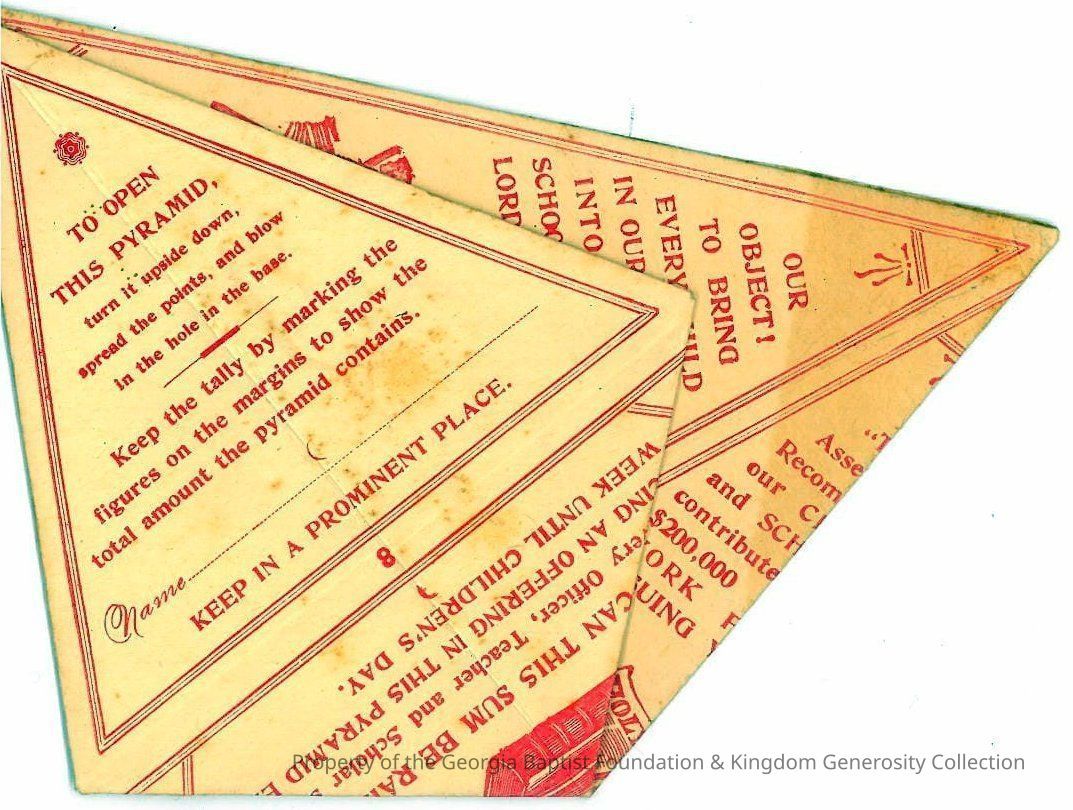 TO OPEN
THIS PYRAMID,
turn it upside down,
spread the points, and blow
in the hole in the base.
Keep the tally by marking the
figures on the margins to show the
total amount the pyramid contains.
Name
KEEP IN A PROMINENT PLACE.
8
CAN THIS SUM BE RA
Officer, Teacher and Scholar
CING AN OFFERING IN THIS PYRAMID E
WEEK UNTIL CHILDREN'S DAY.
OUR
OBJECT!
TO BRING
EVERY
IN OUR
INTO
SCHOO
LORD
Recom
our
and SCH
contribute
$200,000
ORK
GUING
HOLY
Property of the Georgia Baptist Foundation & Kingdom Generosity Collection